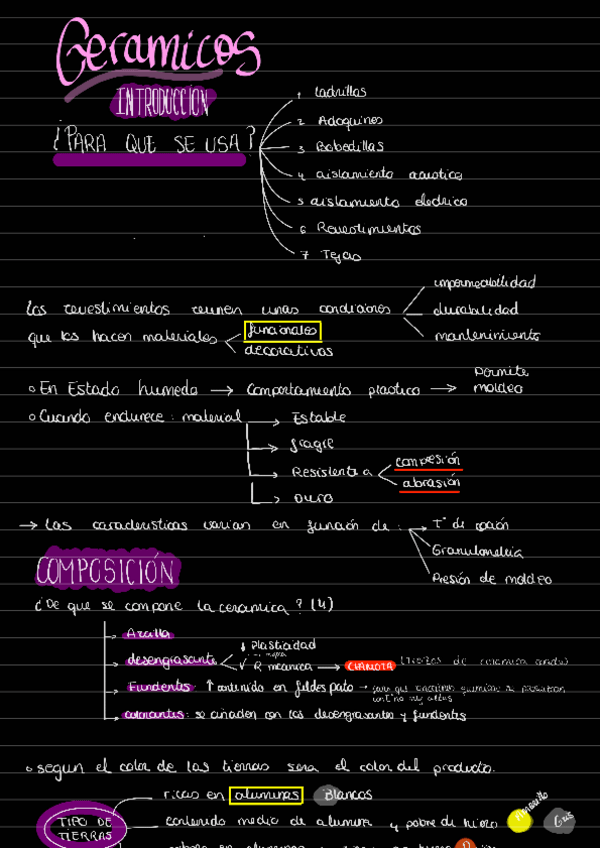 Ceramicos
INTRODUCCIÓN
¿PARA QUE SE USA?
1 Ladrillos
2 Adoquines
3 Bobedillas
4 aislamiento acustico
5 aislamiento electrico
6 Revestimientos
7 Tejas
Los revestimientos reunen unas condiciones
impermeabilidad
durabilidad
mantenimiento
que los hacen materiales
funcionales
decorativos
o En Estado humedo → Comportamiento plastico → Permite moldeo
o Cuando endurece: material → Estable
→ fragil
→ Resistente a
compresión
abrasión
→ Duro
→ Las caracteristicas varian en función de:
Tª de cocción
Granulometria
Presión de moldeo
COMPOSICIÓN
¿De que se compone la ceramica? (4)
→ Arcilla
→ desengrasante
↓ Plasticidad
R mecanica → CHAMOTA (trozos de ceramica
→ Fundentes ↑ contenido en feldespato →
→ colorantes: se añaden con los desengrasantes y fundentes
o segun el color de las tierras sera el color del producto.
TIPO DE TIERRAS
ricas en aluminas Blancos
contenido medio de alumina y pobre de hierro Amarillo Gris